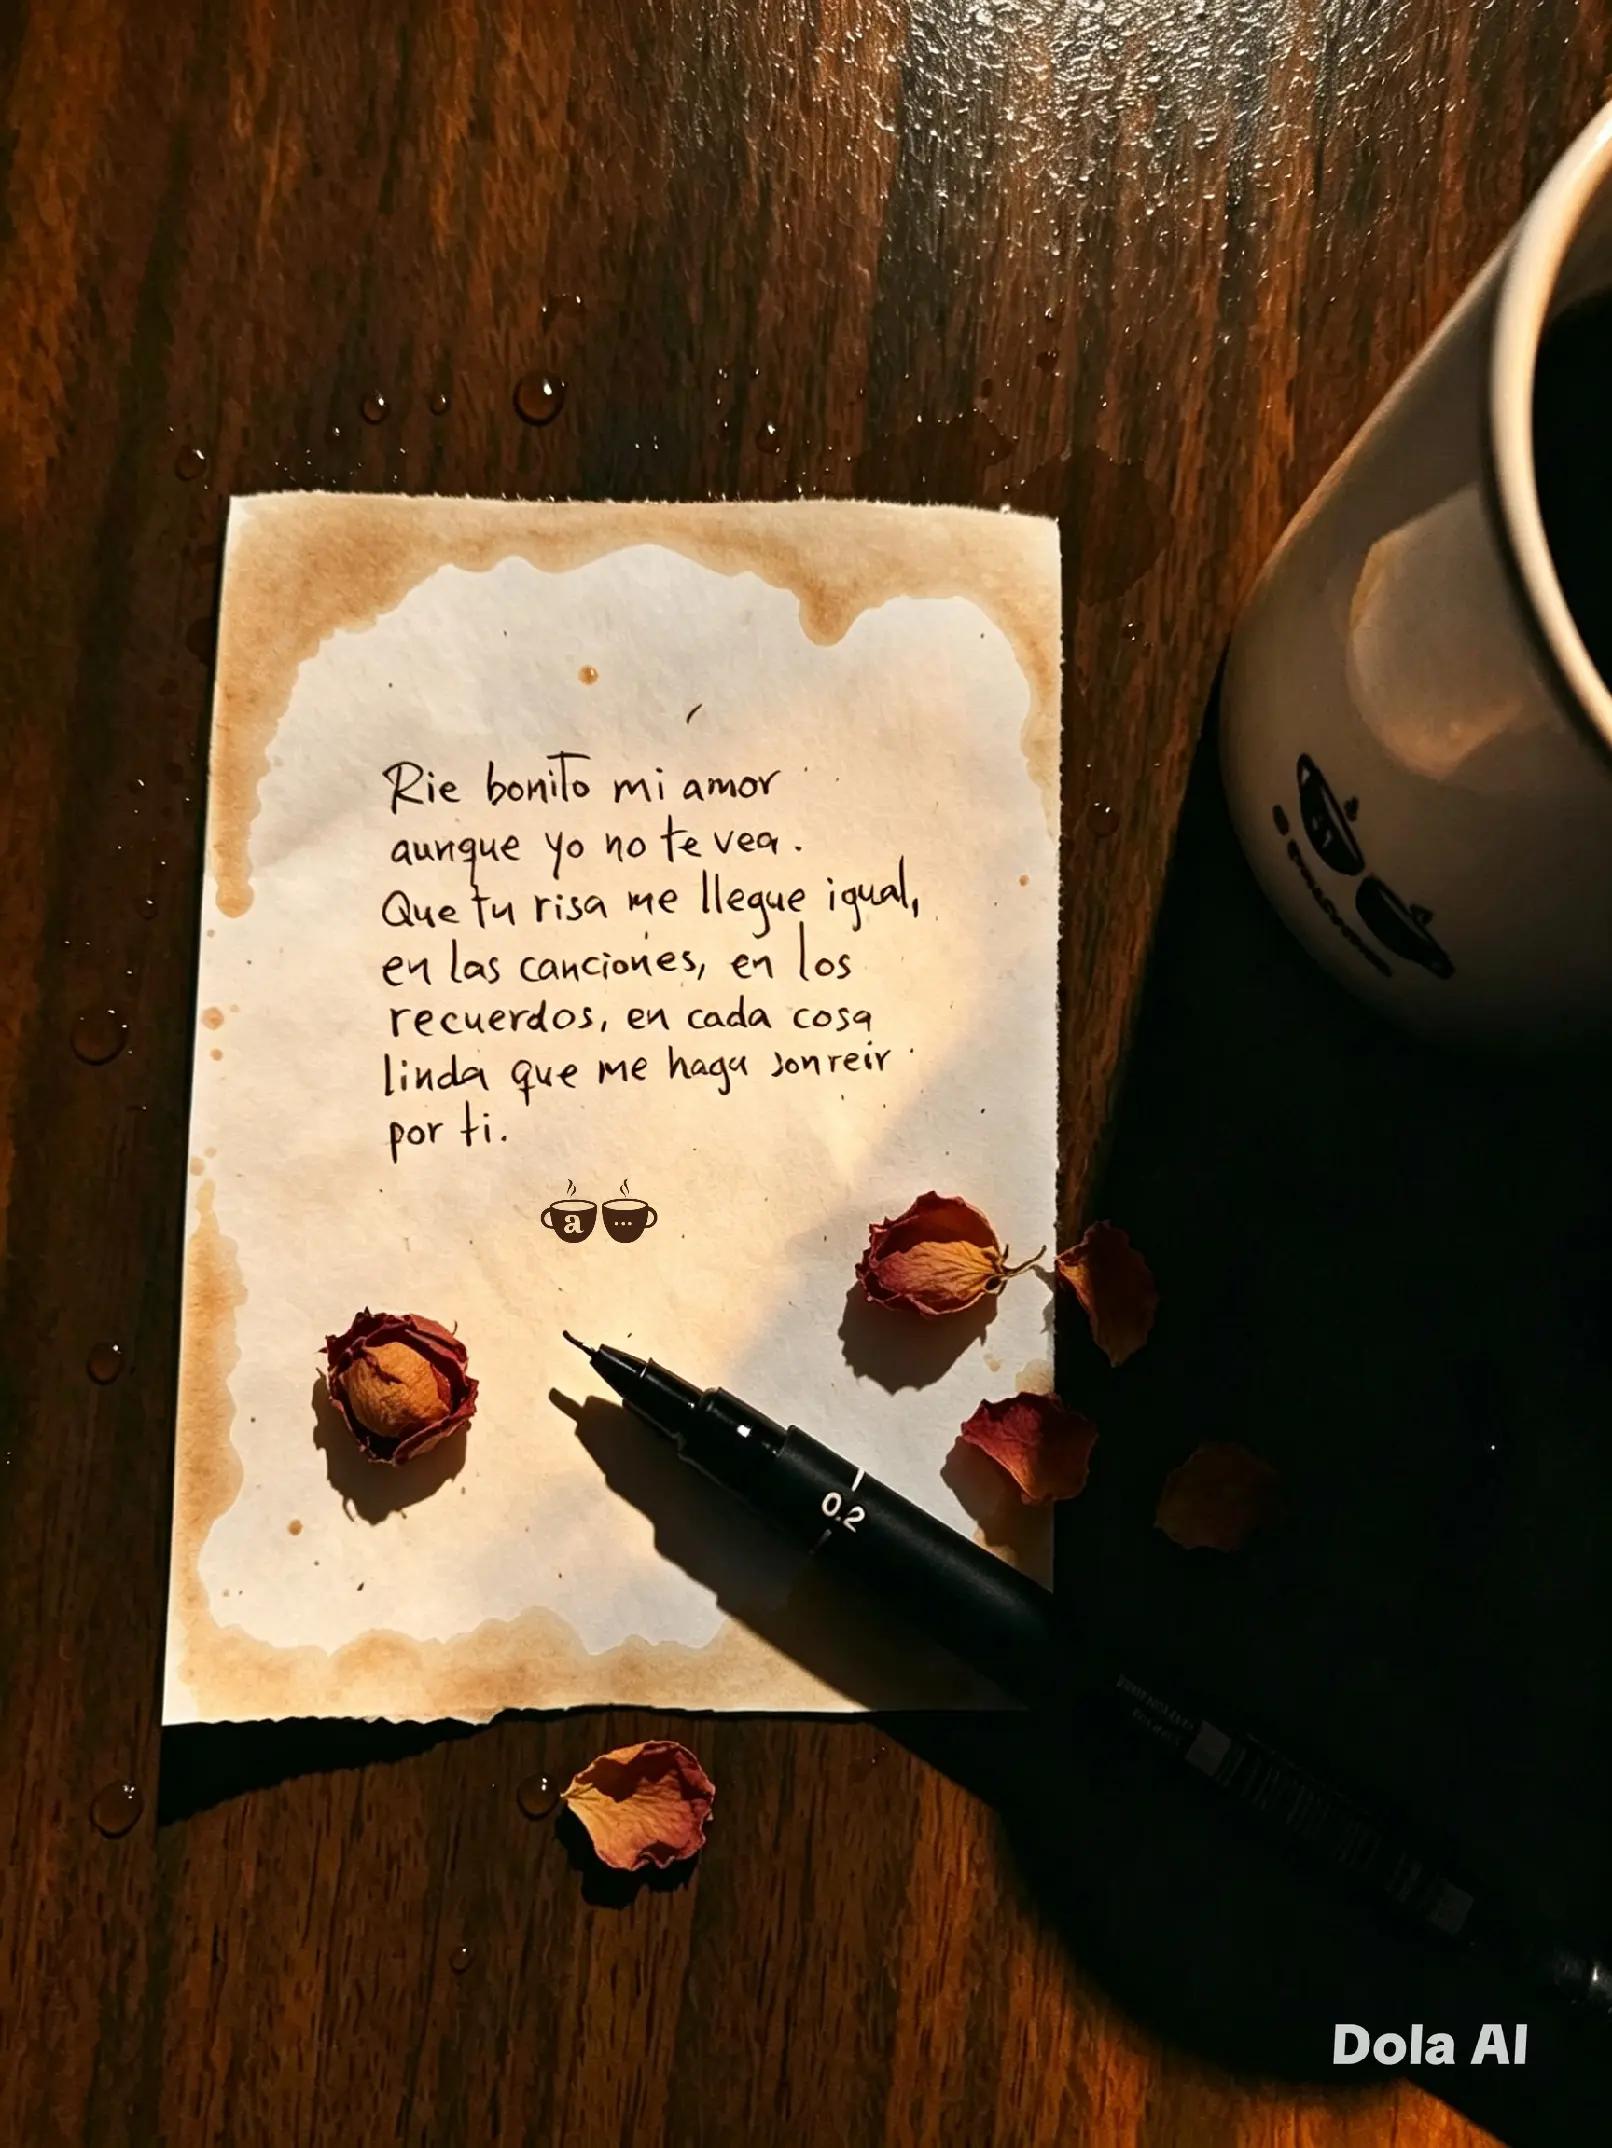 Rie bonito mi amor
aunque yo no te vea.
Que tu risa me llegue igual,
en las canciones, en los
recuerdos, en cada cosa
linda que me haga sonreir
por ti.
a ...
0.2
Dola AI